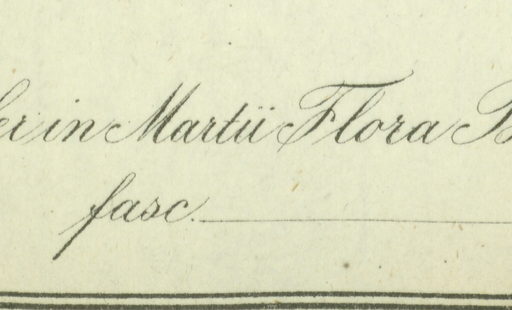 er in Martii Flora B
fasc.